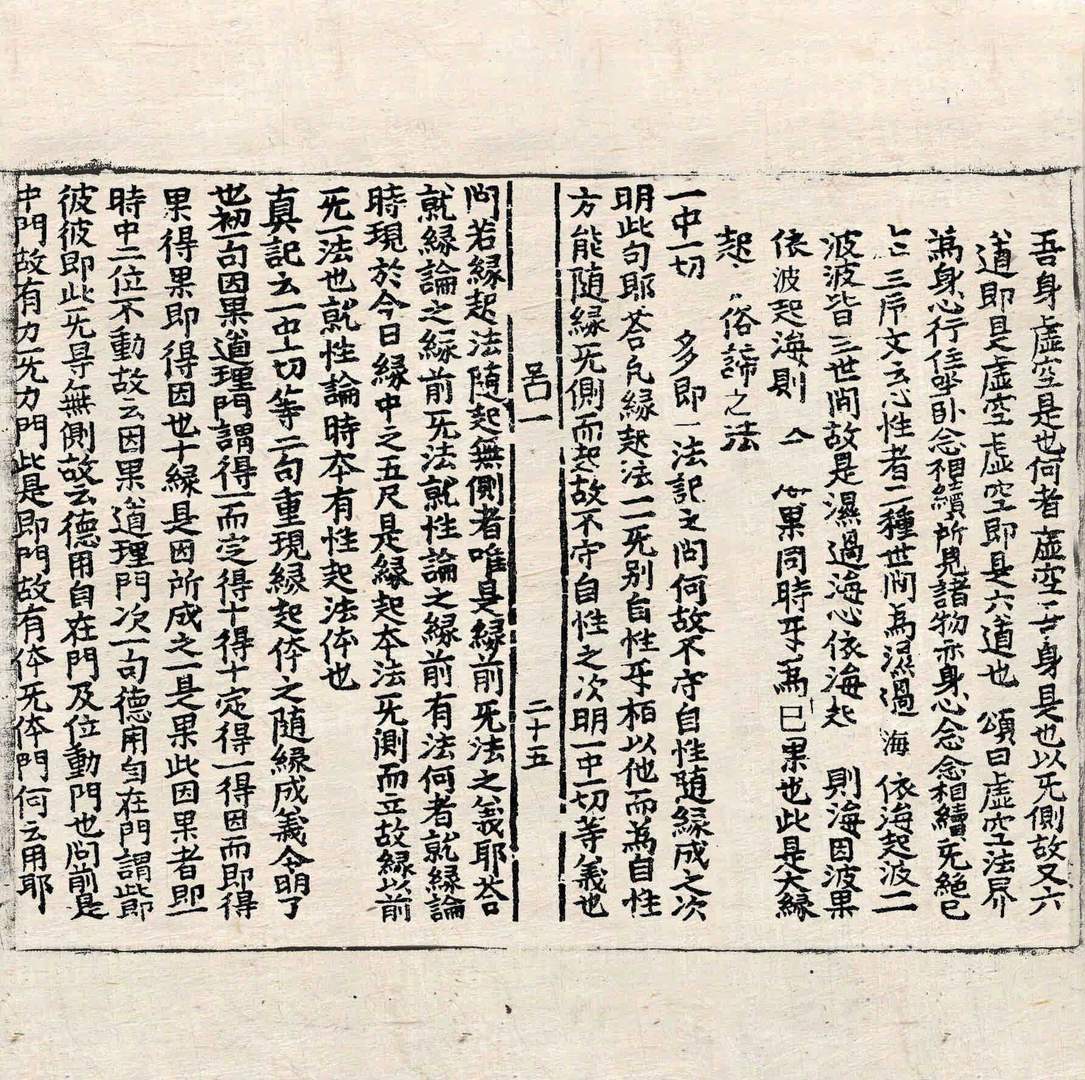 吾身虛空是也何者虛空吾身是也以旡側故又六
道即是虛空虛空即是六道也 頌曰虛空法界
爲身心行住坐卧念相續所見諸物亦身心念念相續旡絕已
三序文云心性者二種世間爲濕過海依海起波二
波波皆三世間故是濕過海心依海起 則海因波果
依波起海則 果同時牙爲 果也此是大緣
起 俗諦之法
一中一切 多即一法記之問何故不守自性随緣成之次
明此句耶荅凡緣起法一一旡别自性牙相以他而爲自性
方能随緣旡側而起故不守自性之次明一中一切等義也
呂一 二十五
問若緣起法随起無側者唯是緣前旡法之義耶荅
就緣論之緣前旡法就性論之緣前有法何者就緣論
時現於今日緣中之五尺是緣起本法旡側而立故緣以前
旡一法也就性論時本有性起法体也
真記云一中一切等二句重現緣起体之随緣成義令明了
也初一句因果道理門謂得一而定得十得十定得一得因而即得
果得果即得因也十緣是因所成之一是果此因果者即一
時中二位不動故云因果道理門次一句德用自在門謂此即
彼彼即此旡㝵無側故云德用自在門及位動門也问前是
中門故有力旡力門此是即門故有体旡体門何云用耶